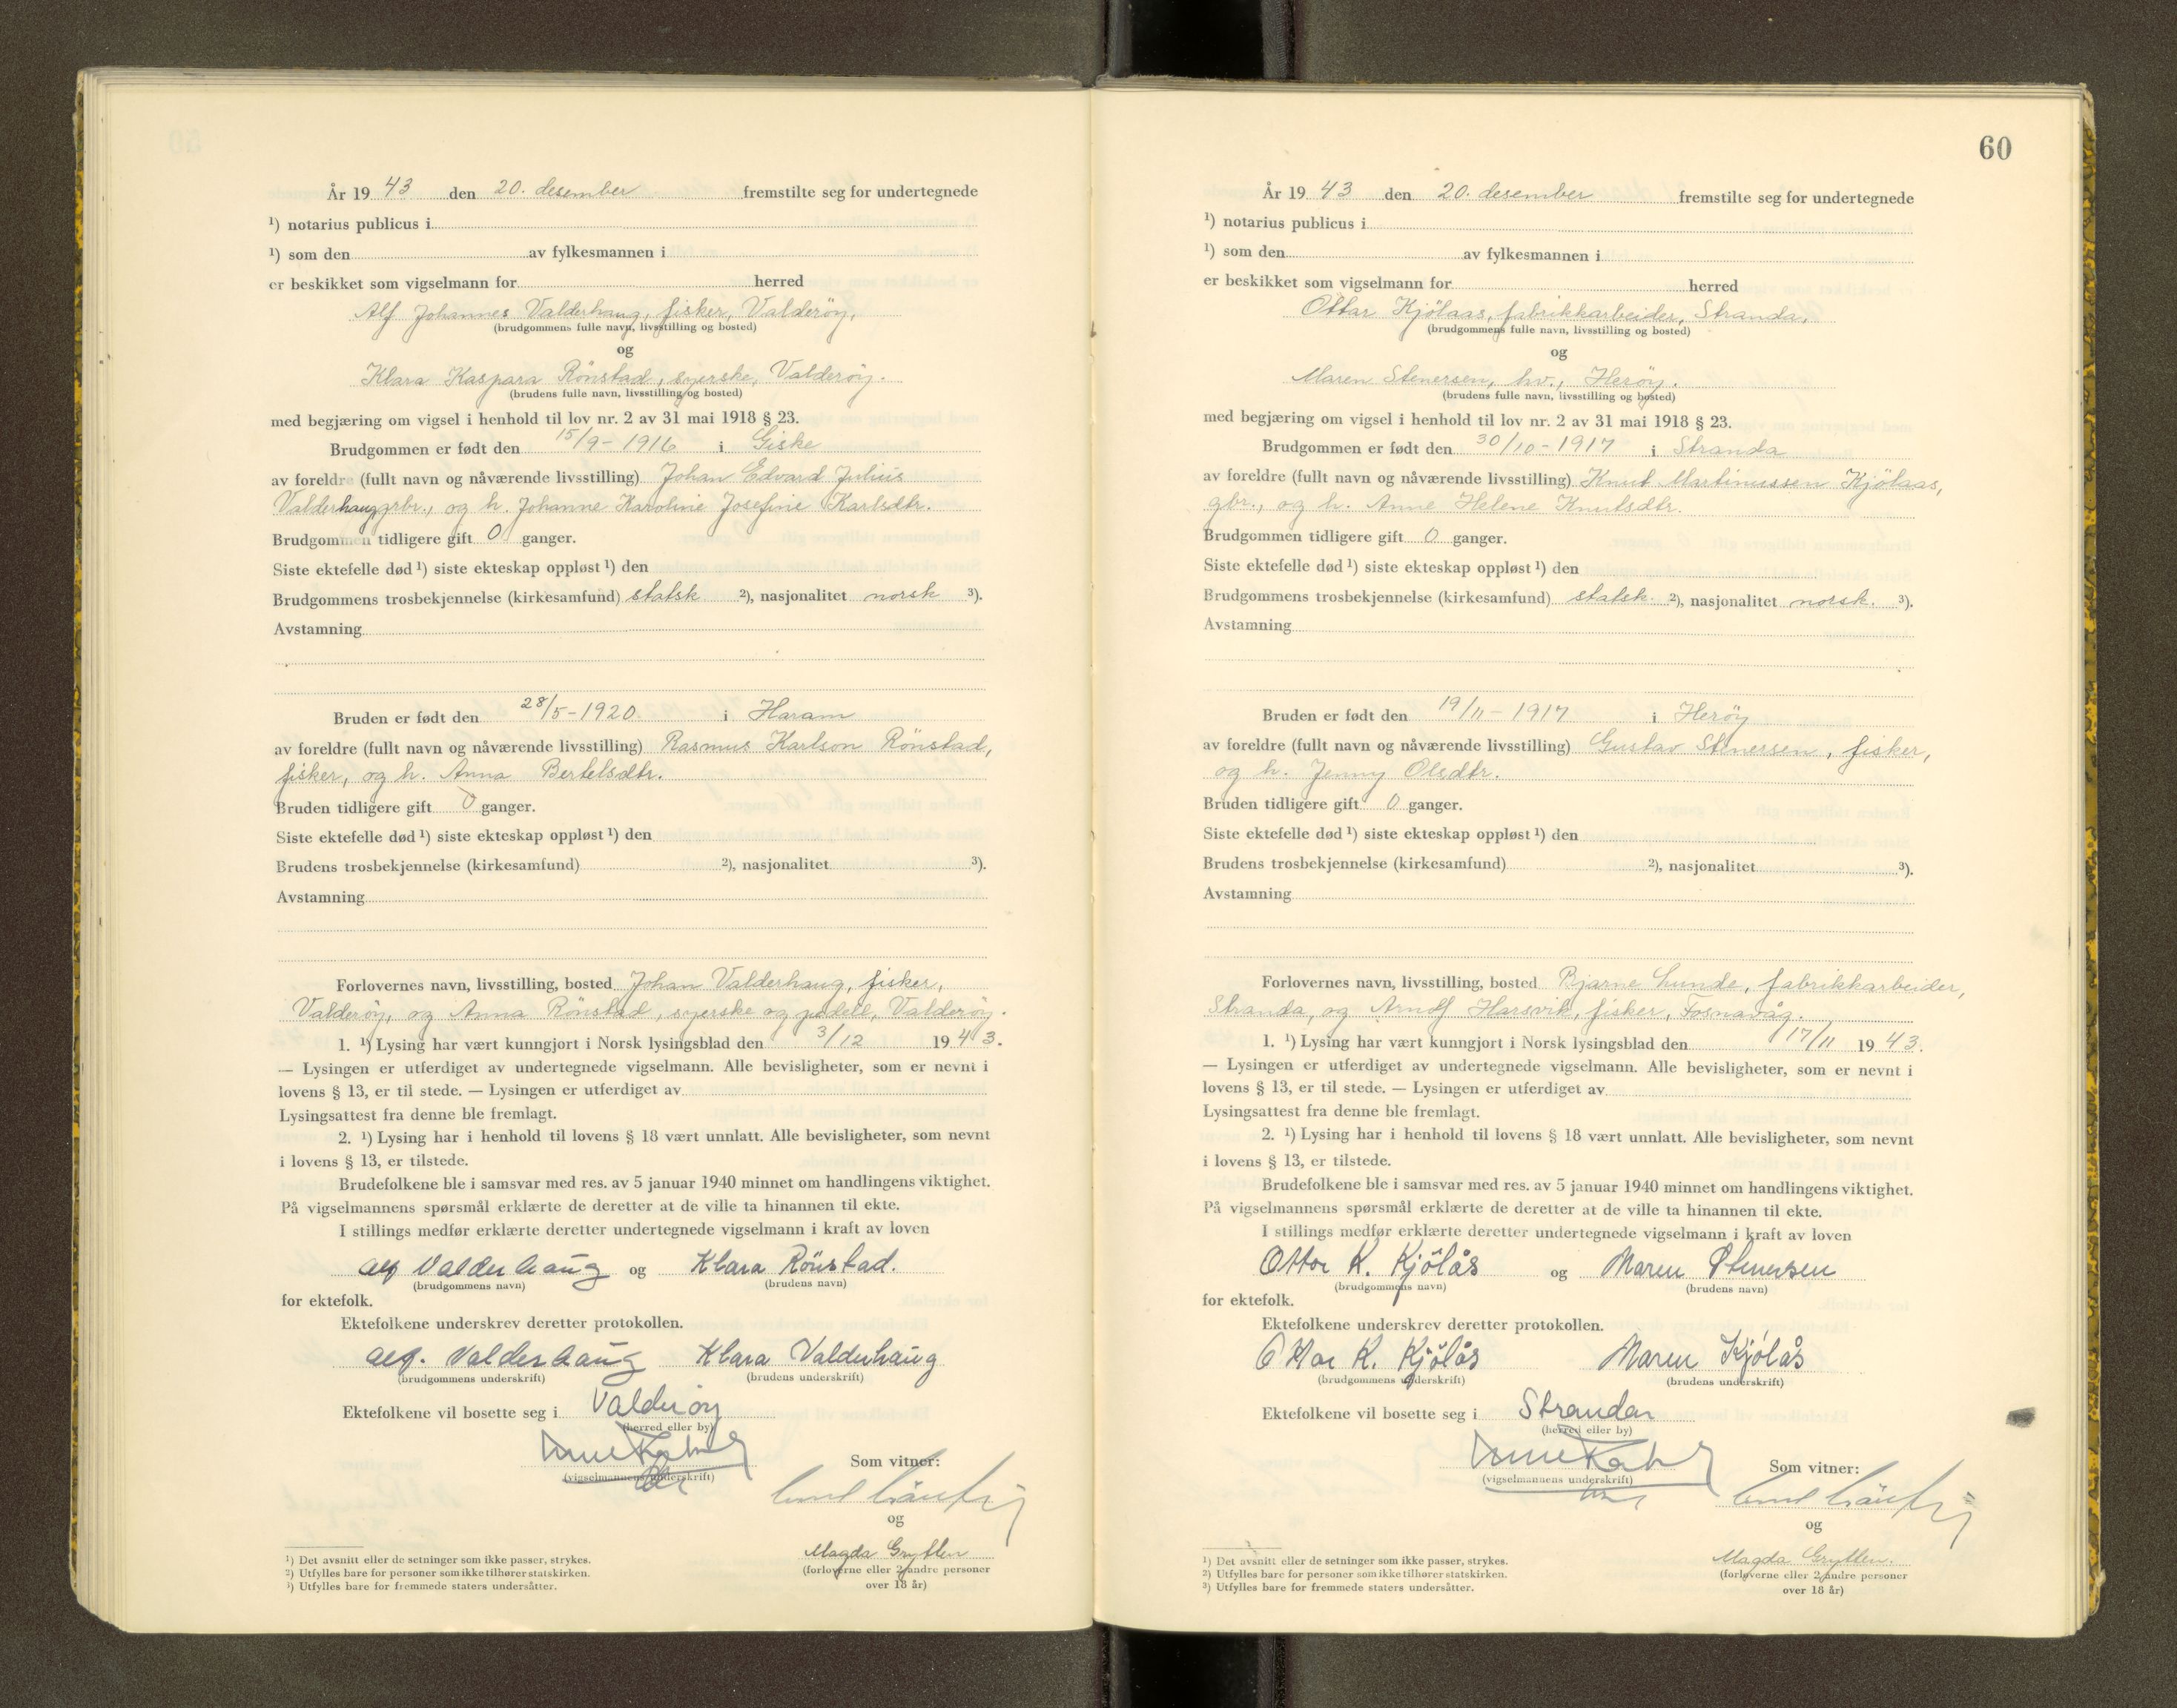 År 19 43 den 20. desember fremstilte seg for undertegnede
¹) notarius publicus i
¹) som den av fylkesmannen i
er beskikket som vigselmann for herred
Alf Johannes Valderhaug, fisker, Valderöy,
(brudgommens fulle navn, livsstilling og bosted)
og
Klara Kaspara Rönstad, syerske, Valderöy.
(brudens fulle navn, livsstilling og bosted)
med begjæring om vigsel i henhold til lov nr. 2 av 31 mai 1918 § 23.
Brudgommen er født den 15/9 - 1916 i Giske
av foreldre (fullt navn og nåværende livsstilling) Johan Edvard Julius
Valderhaug grbr., og h. Johanne Karoline Josefine Karlsdtr.
Brudgommen tidligere gift 0 ganger.
Siste ektefelle død ¹) siste ekteskap oppløst ¹) den
Brudgommens trosbekjennelse (kirkesamfund) statsk ²), nasjonalitet norsk ³).
Avstamning
Bruden er født den 28/5 - 1920 i Haram
av foreldre (fullt navn og nåværende livsstilling) Rasmus Karlson Rönstad,
fisker, og h. Anna Bertelsdtr.
Bruden tidligere gift 0 ganger.
Siste ektefelle død ¹) siste ekteskap oppløst ¹) den
Brudens trosbekjennelse (kirkesamfund) ²), nasjonalitet ³).
Avstamning
Forlovernes navn, livsstilling, bosted Johan Valderhaug, fisker,
Valderöy, og Anna Rönstad, syerske og pedell, Valderöy.
1. ¹) Lysing har vært kunngjort i Norsk lysingsblad den 3/12 19 43.
— Lysingen er utferdiget av undertegnede vigselmann. Alle bevisligheter, som er nevnt i
lovens § 13, er til stede. — Lysingen er utferdiget av
Lysingsattest fra denne ble fremlagt.
2. ¹) Lysing har i henhold til lovens § 18 vært unnlatt. Alle bevisligheter, som nevnt
i lovens § 13, er tilstede.
Brudefolkene ble i samsvar med res. av 5 januar 1940 minnet om handlingens viktighet.
På vigselmannens spørsmål erklærte de deretter at de ville ta hinannen til ekte.
I stillings medfør erklærte deretter undertegnede vigselmann i kraft av loven
Alf Valderhaug og Klara Rönstad.
(brudgommens navn) (brudens navn)
for ektefolk.
Ektefolkene underskrev deretter protokollen.
Alf. Valderhaug Klara Valderhaug
(brudgommens underskrift) (brudens underskrift)
Ektefolkene vil bosette seg i Valderöy
(herred eller by)
(vigselmannens underskrift) Som vitner:
og
Magda Grytten
(forloverne eller 2 andre personer
over 18 år)
¹) Det avsnitt eller de setninger som ikke passer, strykes.
²) Utfylles bare for personer som ikke tilhører statskirken.
³) Utfylles bare for fremmede staters undersåtter.
60
År 19 43 den 20. desember fremstilte seg for undertegnede
¹) notarius publicus i
¹) som den av fylkesmannen i
er beskikket som vigselmann for herred
Ottar Kjölaas, fabrikkarbeider, Stranda,
(brudgommens fulle navn, livsstilling og bosted)
og
Maren Stenersen, hv., Heröy.
(brudens fulle navn, livsstilling og bosted)
med begjæring om vigsel i henhold til lov nr. 2 av 31 mai 1918 § 23.
Brudgommen er født den 30/10 - 1917 i Stranda
av foreldre (fullt navn og nåværende livsstilling) Knut Martinussen Kjölaas,
gbr., og h. Anne Helene Knutsdtr.
Brudgommen tidligere gift 0 ganger.
Siste ektefelle død ¹) siste ekteskap oppløst ¹) den
Brudgommens trosbekjennelse (kirkesamfund) statsk. ²), nasjonalitet norsk. ³).
Avstamning
Bruden er født den 19/11 - 1917 i Heröy
av foreldre (fullt navn og nåværende livsstilling) Gustav Stenersen, fisker,
og h. Jenny Olsdtr.
Bruden tidligere gift 0 ganger.
Siste ektefelle død ¹) siste ekteskap oppløst ¹) den
Brudens trosbekjennelse (kirkesamfund) ²), nasjonalitet ³).
Avstamning
Forlovernes navn, livsstilling, bosted Bjarne Lunde, fabrikkarbeider,
Stranda, og Arnolf Harsvik, fisker, Fosnavåg.
1. ¹) Lysing har vært kunngjort i Norsk lysingsblad den 17/11 19 43.
— Lysingen er utferdiget av undertegnede vigselmann. Alle bevisligheter, som er nevnt i
lovens § 13, er til stede. — Lysingen er utferdiget av
Lysingsattest fra denne ble fremlagt.
2. ¹) Lysing har i henhold til lovens § 18 vært unnlatt. Alle bevisligheter, som nevnt
i lovens § 13, er tilstede.
Brudefolkene ble i samsvar med res. av 5 januar 1940 minnet om handlingens viktighet.
På vigselmannens spørsmål erklærte de deretter at de ville ta hinannen til ekte.
I stillings medfør erklærte deretter undertegnede vigselmann i kraft av loven
Ottar K. Kjölås og Maren Stenersen
(brudgommens navn) (brudens navn)
for ektefolk.
Ektefolkene underskrev deretter protokollen.
Ottar K. Kjölås Maren Kjölås
(brudgommens underskrift) (brudens underskrift)
Ektefolkene vil bosette seg i Strandar
(herred eller by)
(vigselmannens underskrift) Som vitner:
og
Magda Grytten.
(forloverne eller 2 andre personer
over 18 år)
¹) Det avsnitt eller de setninger som ikke passer, strykes.
²) Utfylles bare for personer som ikke tilhører statskirken.
³) Utfylles bare for fremmede staters undersåtter.